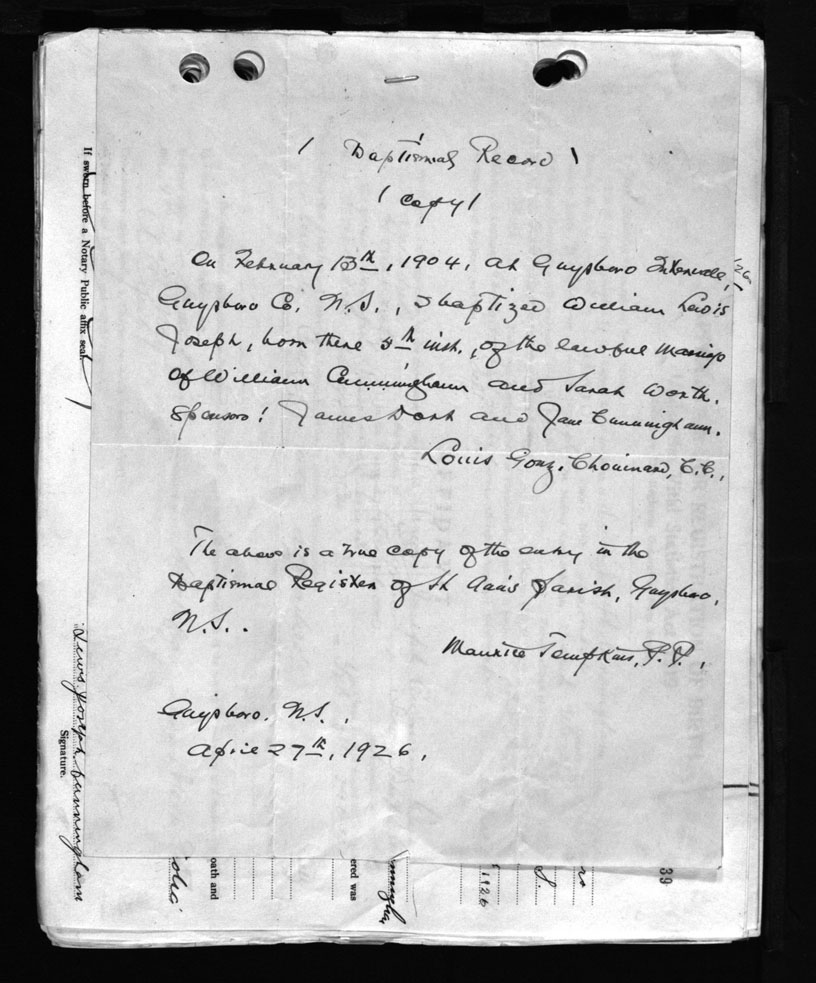 ( Baptismal Record )
( copy )
On February 13th, 1904, at Guysboro Intervale,
Guysboro Co. N.S., I baptized William Lewis
Joseph, born there 5th inst., of the lawful marriage
of William Cunningham and Sarah Worth.
Sponsors: James Dort and Jane Cunningham.
Louis Gonz. Chouinard, C.C.,
The above is a true copy of the entry in the
Baptismal Register of St Ann's Parish, Guysboro,
N.S..
Maurice Tompkins, P.P.,
Guysboro. N.S.,
April 27th, 1926,
If sworn before a Notary Public affix seal.
Lewis Joseph Cunningham
Signature.
oath and
ered was
1926
S.
39